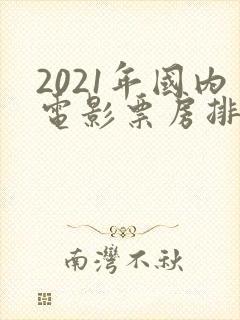 2021年國內
電影票房排
南灣不秋